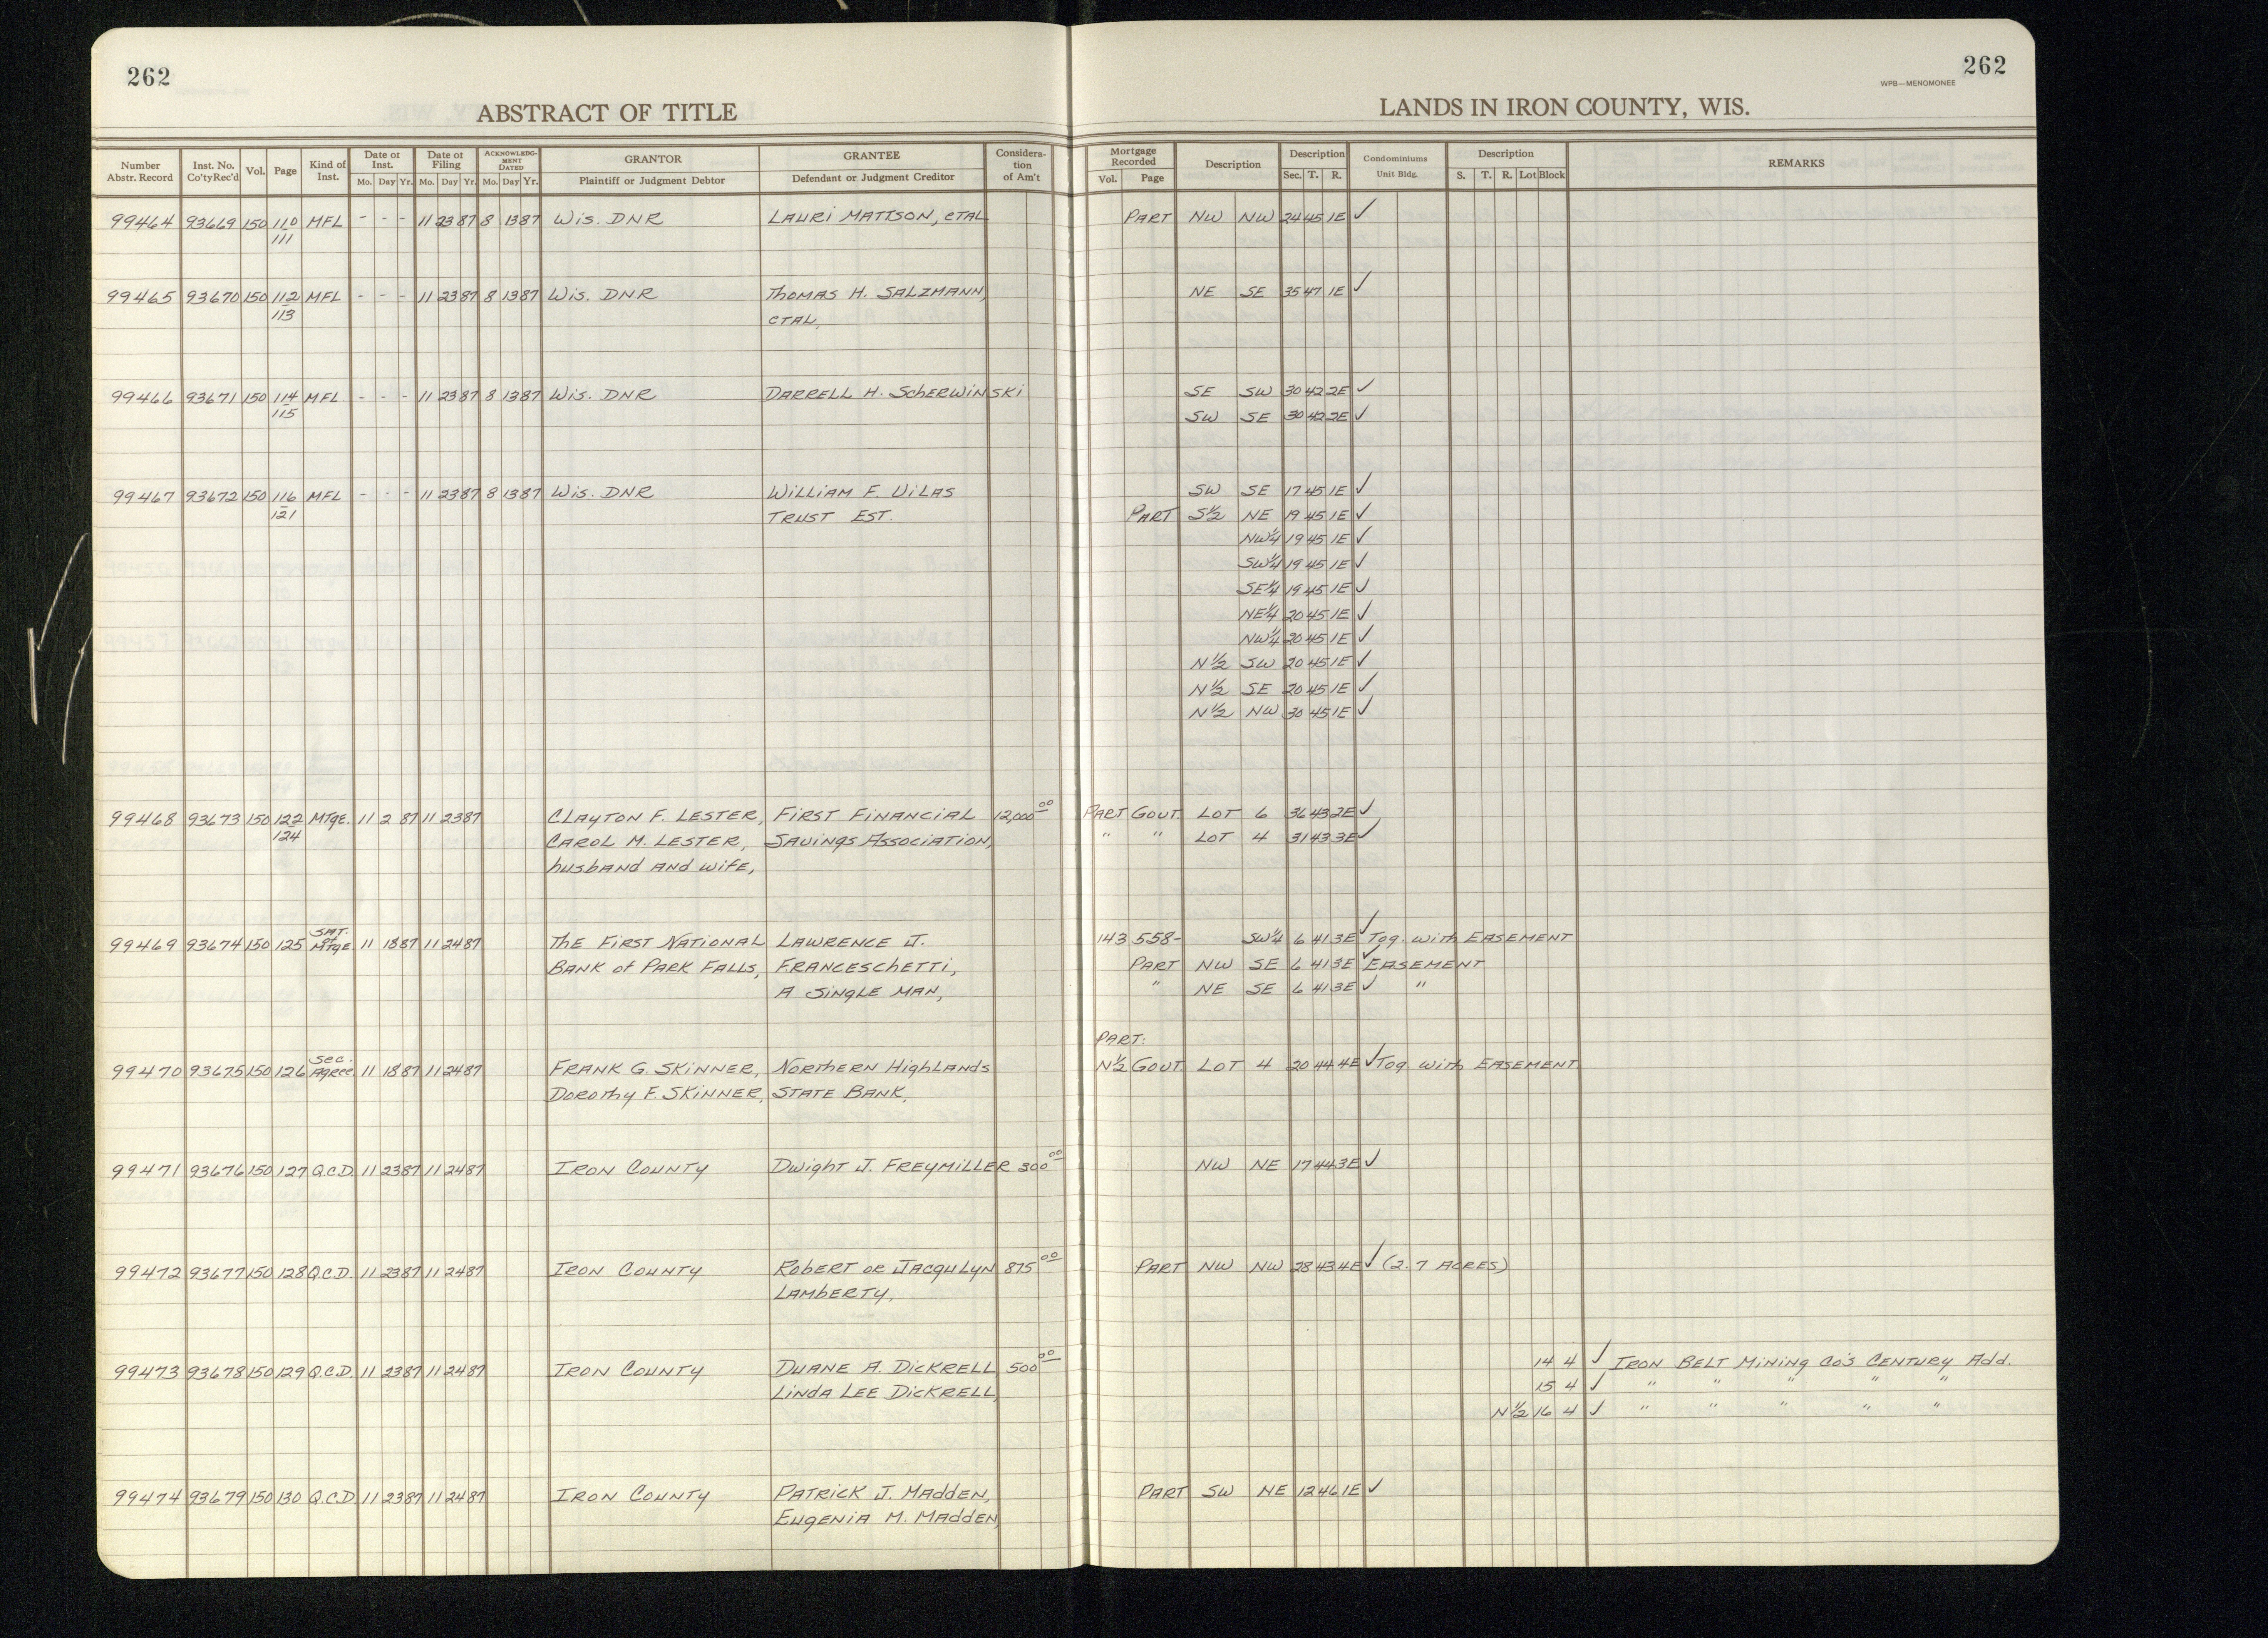 262
ABSTRACT OF TITLE
Number Abstr. Record | Inst. No. Co'ty Rec'd | Vol. | Page | Kind of Inst. | Date of Inst. Mo. Day Yr. | Date of Filing Mo. Day Yr. | ACKNOWLEDGMENT DATED Mo. Day Yr. | GRANTOR Plaintiff or Judgment Debtor | GRANTEE Defendant or Judgment Creditor | Consideration of Am't
99464 93669 150 110 MFL - - - 11 23 87 8 13 87 Wis. DNR LAURI MATTSON, ETAL
111
99465 93670 150 112 MFL - - - 11 23 87 8 13 87 Wis. DNR THOMAS H. SALZMANN,
113 ETAL,
99466 93671 150 114 MFL - - - 11 23 87 8 13 87 Wis. DNR DARRELL H. SCHERWINSKI
115
99467 93672 150 116 MFL - - - 11 23 87 8 13 87 Wis. DNR WILLIAM F. VILAS
121 TRUST EST.
99468 93673 150 122 MTGE. 11 2 87 11 23 87 CLAYTON F. LESTER, FIRST FINANCIAL 12,000 00
124 CAROL M. LESTER, SAVINGS ASSOCIATION,
husband and wife,
99469 93674 150 125 SAT. of MTGE. 11 18 87 11 24 87 The FIRST NATIONAL LAWRENCE J.
BANK of PARK FALLS, FRANCESCHETTI,
A SINGLE MAN,
99470 93675 150 126 Sec. Agree. 11 18 87 11 24 87 FRANK G. SKINNER, NORTHERN HIGHLANDS
DOROTHY F. SKINNER, STATE BANK,
99471 93676 150 127 Q.C.D. 11 23 87 11 24 87 IRON COUNTY DWIGHT J. FREYMILLER 300 00
99472 93677 150 128 Q.C.D. 11 23 87 11 24 87 IRON COUNTY ROBERT OR JACQULYN 875 00
LAMBERTY,
99473 93678 150 129 Q.C.D. 11 23 87 11 24 87 IRON COUNTY DUANE A. DICKRELL 500 00
LINDA LEE DICKRELL,
99474 93679 150 130 Q.C.D. 11 23 87 11 24 87 IRON COUNTY PATRICK J. MADDEN,
EUGENIA M. MADDEN,
262
WPB—MENOMONEE
LANDS IN IRON COUNTY, WIS.
Mortgage Recorded Vol. Page | Description | Description Sec. T. R. | Condominiums Unit Bldg. | Description S. T. R. Lot Block | REMARKS
PART NW NW 24 45 1E ✓
NE SE 35 47 1E ✓
SE SW 30 42 2E ✓
SW SE 30 42 2E ✓
SW SE 17 45 1E ✓
PART S½ NE 19 45 1E ✓
NW¼ 19 45 1E ✓
SW¼ 19 45 1E ✓
SE¼ 19 45 1E ✓
NE¼ 20 45 1E ✓
NW¼ 20 45 1E ✓
N½ SW 20 45 1E ✓
N½ SE 20 45 1E ✓
N½ NW 30 45 1E ✓
PART GOVT. LOT 6 36 43 2E ✓
" " LOT 4 31 43 3E ✓
143 558- SW¼ 6 41 3E ✓ Tog. with EASEMENT
PART NW SE 6 41 3E ✓ EASEMENT
" NE SE 6 41 3E ✓ "
PART:
N½ GOVT. LOT 4 20 44 4E ✓ Tog with EASEMENT
NW NE 17 44 3E ✓
PART NW NW 28 43 4E ✓ (2.7 ACRES)
14 4 ✓ IRON BELT MINING CO'S CENTURY Add.
15 4 ✓ " " " " "
N½ 16 4 ✓ " " " " "
PART SW NE 12 46 1E ✓